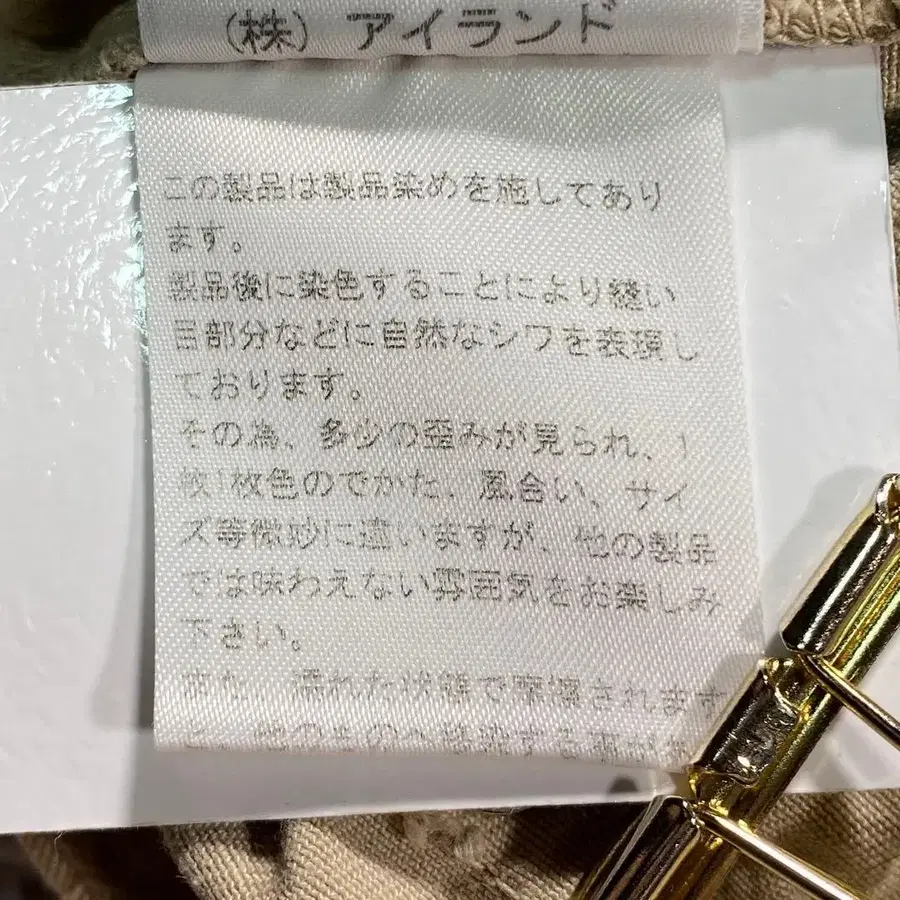 (株) アイランド
この製品は製品染めを施してあり
ます。
製品後に染色することにより縫い
目部分などに自然なシワを表現し
ております。
その為、多少の歪みが見られ、1
枚1枚色のでかた、風合い、サイ
ズ等微妙に違いますが、他の製品
では味わえない雰囲気をお楽しみ
下さい。
また 濡れた状態で放置されます
と、他のものへ移染する事が